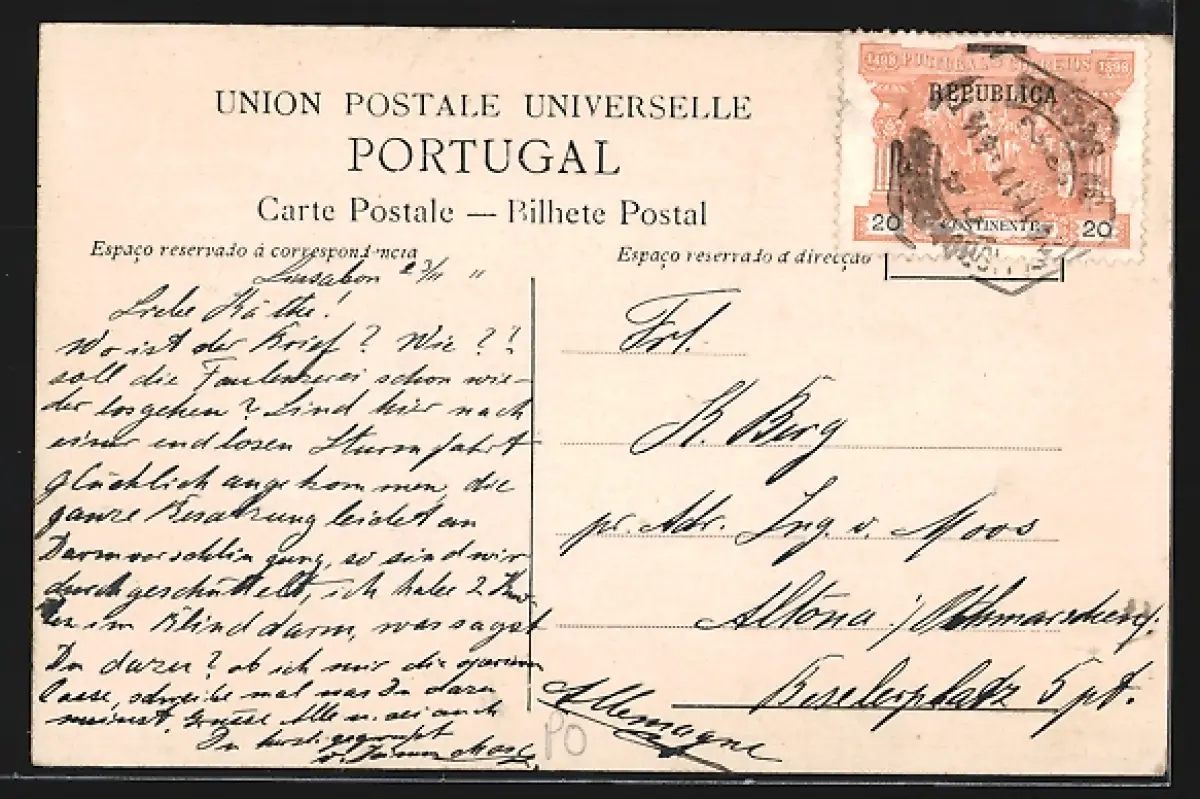 UNION POSTALE UNIVERSELLE
PORTUGAL
Carte Postale — Bilhete Postal
Espaço reservado á correspondencia
Espaço reservado á direcção
1498 PORTUGAL CORREIOS 1898
REPUBLICA
20 CONTINENTE 20
Lissabon 23/11 "
Liebe Käthe!
Wo ist der Brief? Wie?!
soll die Faulenzerei schon wie-
der losgehen? Sind hier nach
einer endlosen Sturmfahrt
glücklich angekommen, die
ganze Besatzung leidet an
Darmverschlingung, so sind wir
durchgeschüttelt, ich habe 2 Kno-
ten im Blinddarm, was sagst
Du dazu? ob ich mir die
lasse, schreibe mal was Du dazu
meinst. Grüsse Alle u. sei auch
Du herzl. gegrüsst
v. Deinem
Frl.
K. Berg
pr. Adr. Ing. v. Moos
Altona / Othmarschen
Beselerplatz 5 pt.
Allemagne
PO